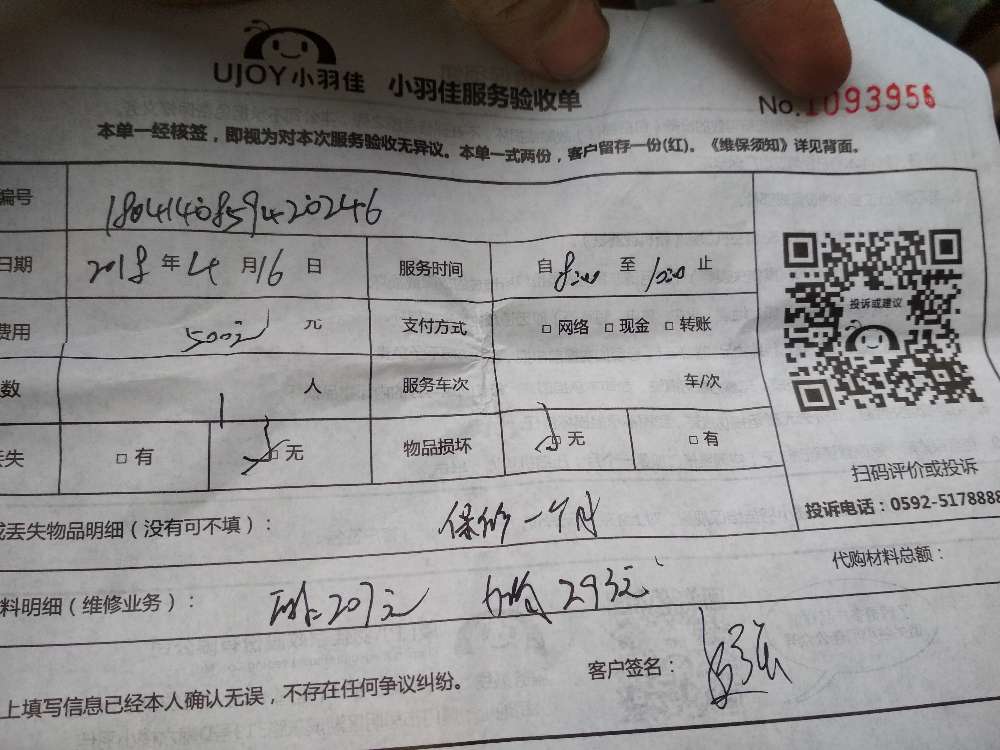 UJOY小羽佳 小羽佳服务验收单
No.1093956
本单一经核签，即视为对本次服务验收无异议。本单一式两份，客户留存一份(红)。《维保须知》详见背面。
编号 180414085942 0246
日期 2018 年 4 月 16 日 服务时间 自 8:00 至 10:00 止
费用 500元 元 支付方式 □ 网络 □ 现金 □ 转账
数 1 人 服务车次 车/次
丢失 □ 有 □ 无 物品损坏 □ 无 □ 有
投诉或建议
扫码评价或投诉
投诉电话：0592-5178888
或丢失物品明细（没有可不填）： 保修一个月
料明细（维修业务）： 207元 293元
代购材料总额：
上填写信息已经本人确认无误，不存在任何争议纠纷。
客户签名：